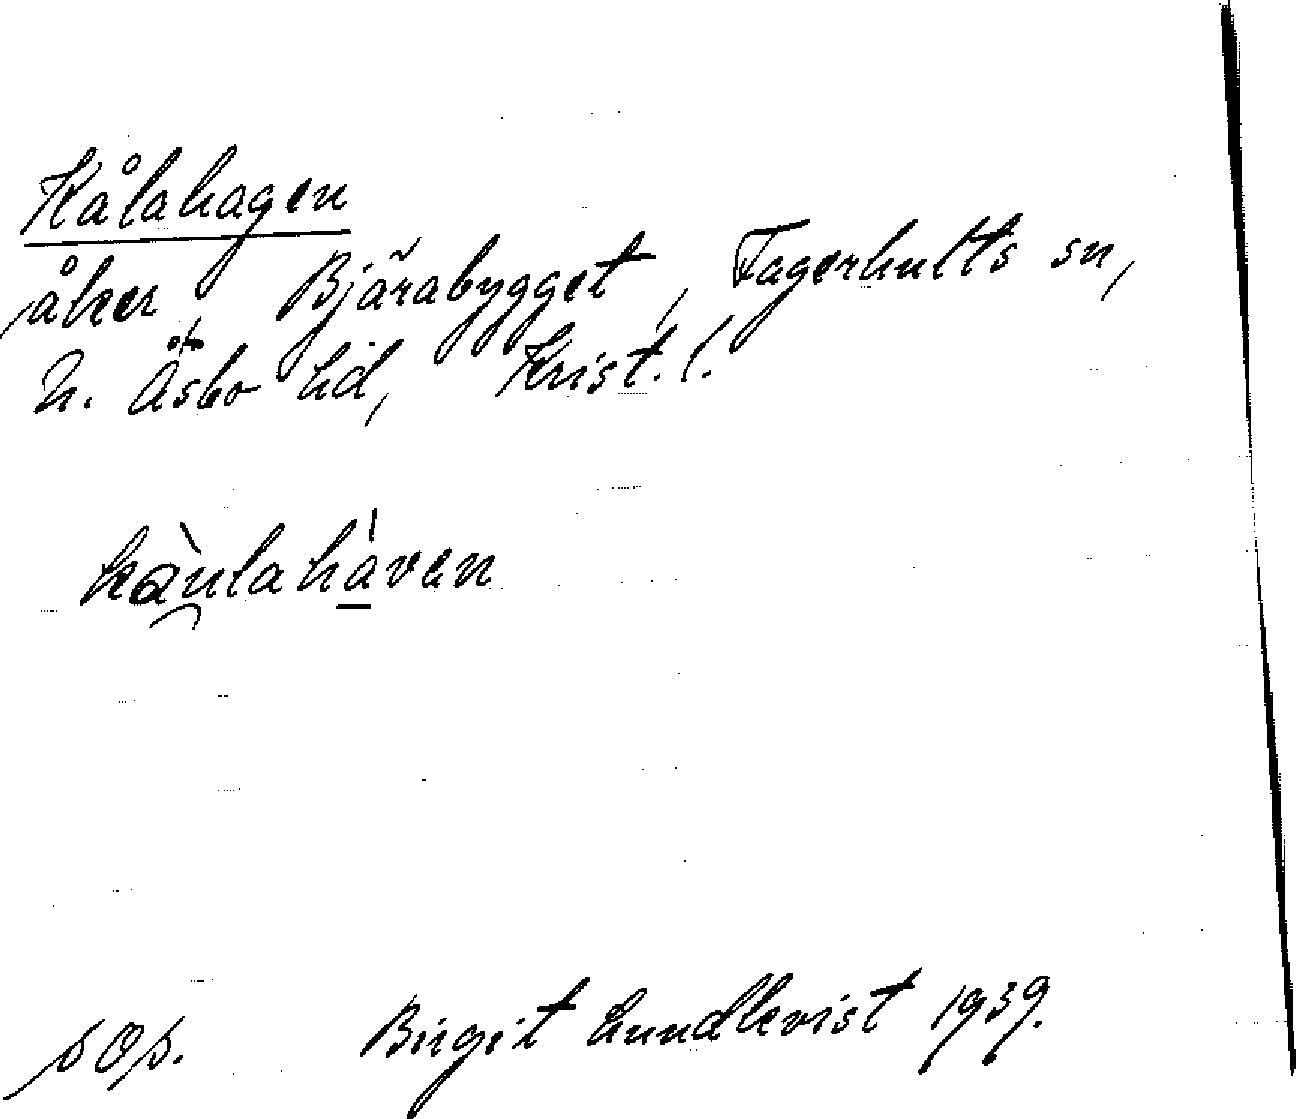 Kålahagen
åker, Bjärabygget, Fagerhults sn,
N. Åsbo hd, Krist. l.
kàu̯lahàven
sop. Birgit Lundkvist 1939.